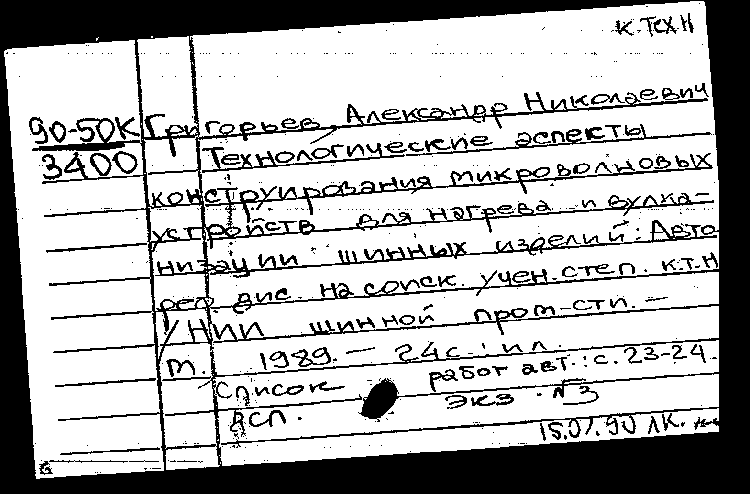 К. Тех Н
90-50К Григорьев, Александр Николаевич
3400 Технологические аспекты
конструирования микроволновых
устройств для нагрева и вулка-
низации шинных изделий: Авто
реф. дис. на соиск. учен. степ. к.т.н
/ НИИ шинной пром-сти. —
М. 1989. — 24 с.: ил.
Список работ авт.: с. 23-24.
ДСП. экз. №3
15.01.90 ЛК.